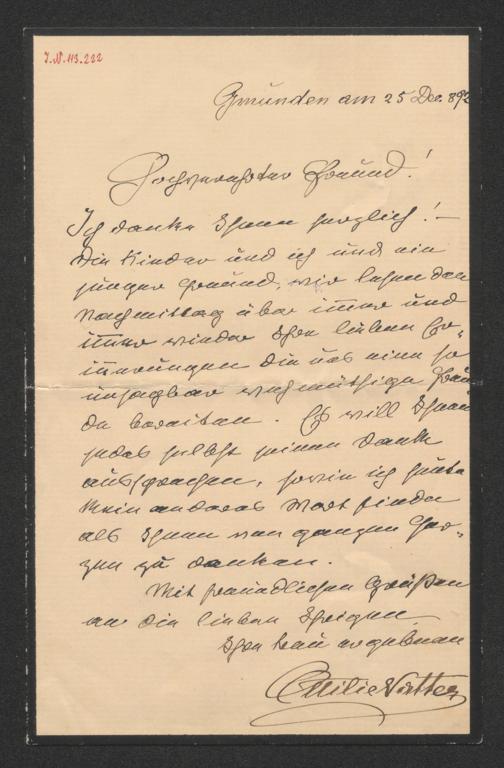 I.N. 113.222
Gmunden am 25 Dec. 892
Hochverehrter Freund!
Ich danke Ihnen herzlich! –
Die Kinder und ich und ein
junger Freund, wir lesen den
Nachmittag über immer und
immer wieder Ihre lieben Er=
innerungen die uns eine so
unsagbar wehmüthige Freu
de bereiten. Es will Ihnen
jedes selbst seinen Dank
aussprechen, sowie ich heute
kein anderes Wort finde
als Ihnen von ganzem Her=
zen zu danken.
Mit freundlichen Grüßen
an die lieben Ihrigen
Ihre treu ergebene